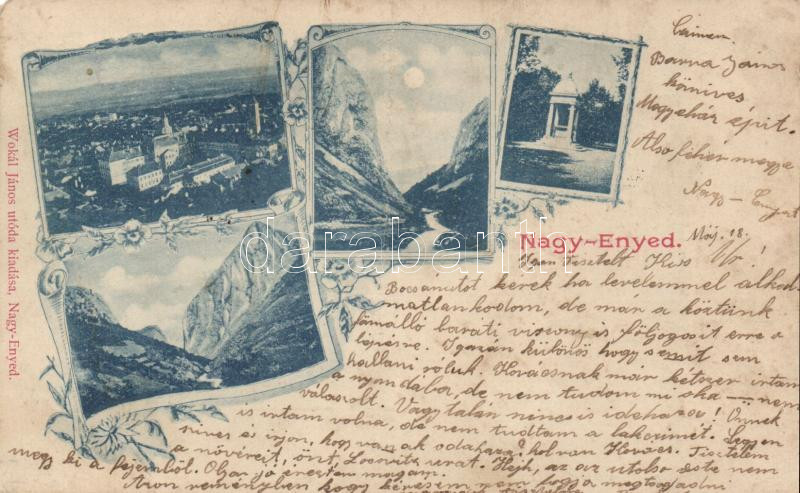 Wokál János utóda kiadása, Nagy-Enyed.
Czimem.
Barna János
köníves
Megyeház épit.
Alsó fehér megye
Nagy-Enyed
Nagy-Enyed.
Máj. 18.
Igen tisztelt Kiss Úr!
Bocsánatot kerek ha levelemmel alkal-
matlankodom, de már a köztünk
fönnálló baráti viszony is följogosit erre a
lépésre. Igazán különös hogy semmit sem
hallani roluk. Kovácsnak már kétszer irtam
a nyomdába, de nem tudom mi oka — nem
válaszolt. Vagy talán nincs is idehaza! Önnek
is irtam volna, de nem tudtam a lakcimét. Legyen
szives és irjon, hogy vannak odahaza? hol van Kovács. Tisztelem
a nővéreit, önt, urat. Hejh, az az utolsó este nem
megy ki a fejemből. Olyan jó éreztem magam.
Azon reményben hogy kérésem nem fogja megtagadni
darabanth